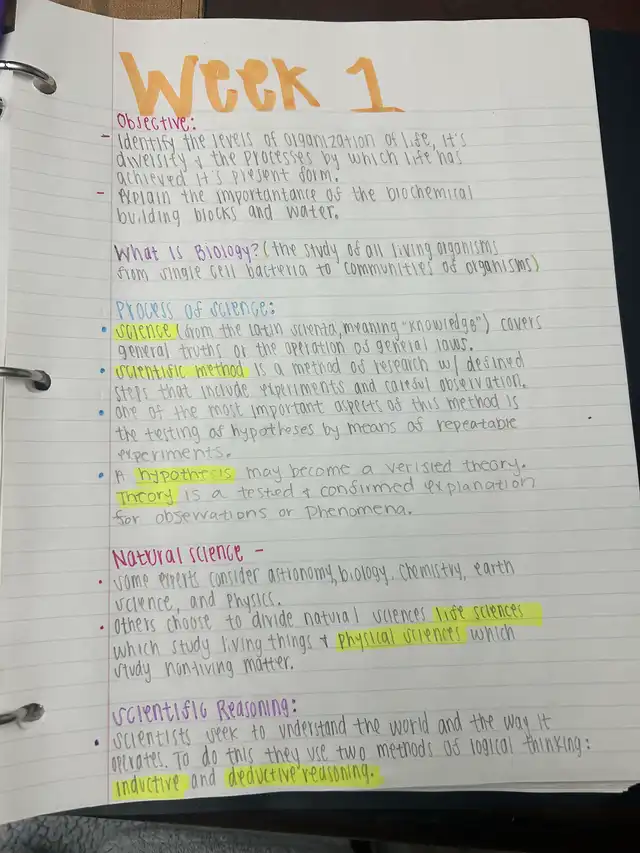 Week 1
Objective:
- Identify the levels of organization of life, it's
diversity & the processes by which life has
achieved it's present form.
- Explain the importantance of the biochemical
building blocks and water.
What is Biology? (the study of all living organisms
from single cell bacteria to communities of organisms)
Process of science:
• science (from the latin scienta, meaning "knowledge") covers
general truths or the operation of general laws.
• scientific method is a method of research w/ defined
steps that include experiments and careful observation.
• one of the most important aspects of this method is
the testing of hypotheses by means of repeatable
experiments.
• A hypothesis may become a verified theory.
Theory is a tested & confirmed explanation
for observations or phenomena.
Natural science -
• some experts consider astronomy, biology, chemistry, earth
science, and physics.
• others choose to divide natural sciences life sciences
which study living things & physical sciences which
study non-living matter.
Scientific Reasoning:
• scientists seek to understand the world and the way it
operates. To do this they use two methods of logical thinking:
inductive and deductive reasoning.